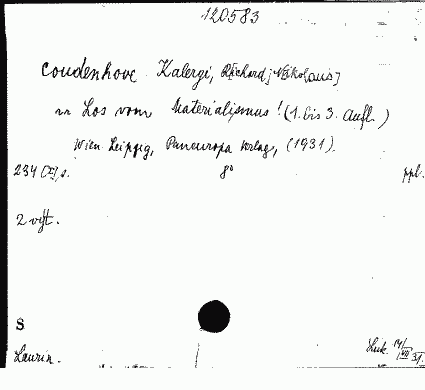 120583
Coudenhove Kalergi, Richard [Nikolaus]
Los vom Materialismus! (1. bis 3. Aufl.)
Wien Leipzig, Paneuropa Verlag, (1931).
234 s. 8° ppl.
2 výt.
S
Laurin. 31.